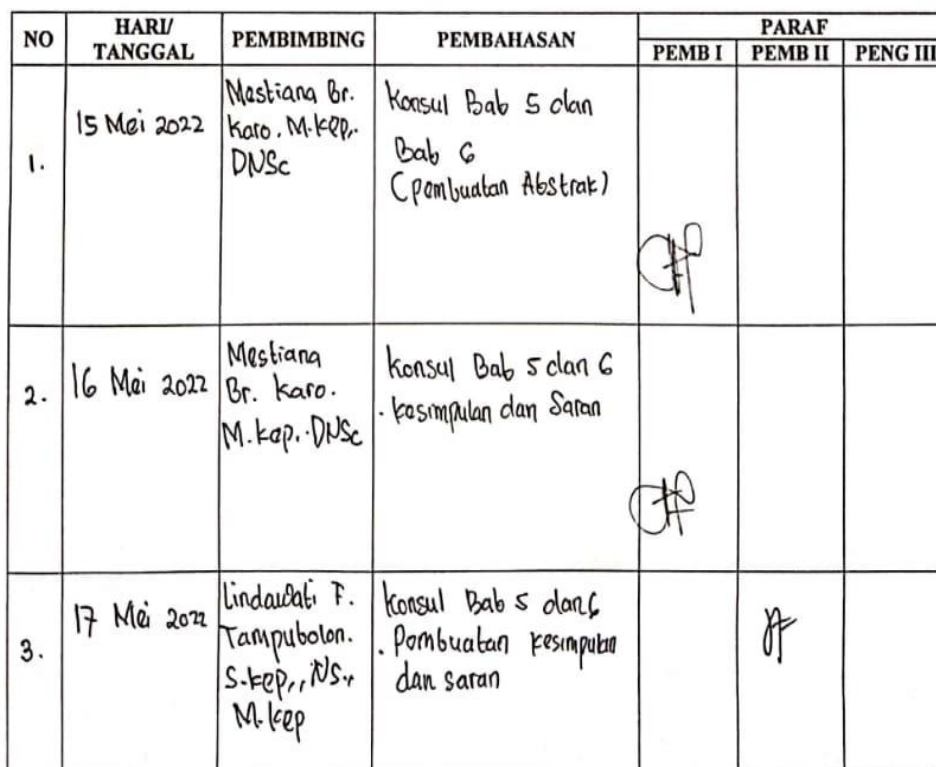 NO HARI/ TANGGAL PEMBIMBING PEMBAHASAN PARAF
PEMB I PEMB II PENG III
1.
15 Mei 2022
Mestiana Br.
Karo. M.Kep,.
DNSc
Konsul Bab 5 dan
Bab 6
(pembuatan Abstrak)
2.
16 Mei 2022
Mestiana
Br. Karo.
M.kep,. DNSc
Konsul Bab 5 dan 6
. kesimpulan dan Saran
3.
17 Mei 2022
Lindawati F.
Tampubolon.
S.kep,, NS.,
M.kep
Konsul Bab 5 dan 6
. Pembuatan kesimpulan
dan saran